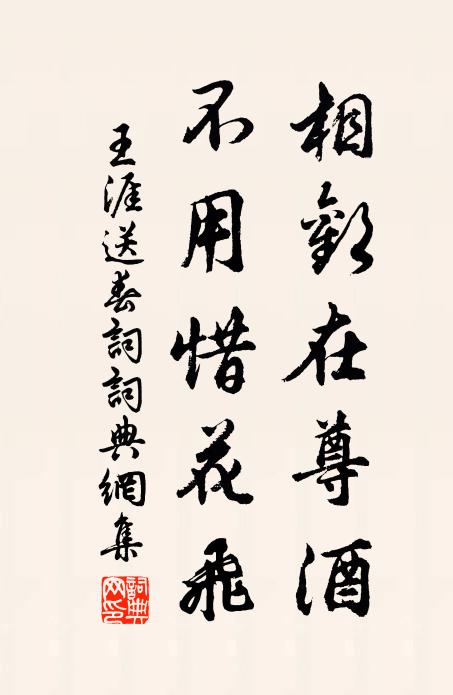 相歡在尊酒
不用惜花飛
王涯送春詞詞典網集
詞典網印